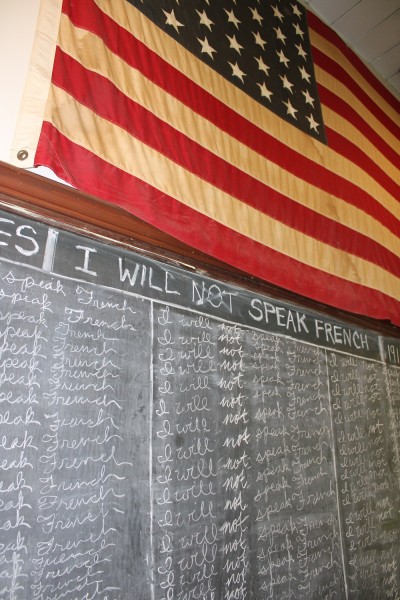 ES I WILL NOT SPEAK FRENCH 191
speak French
speak French
speak French
speak French
speak French
speak French
speak French
speak French
speak French
speak French
speak French
speak French
speak French
speak French
speak French
speak French
I will not speak French
I will not speak French
I will not speak French
I will not speak French
I will not speak French
I will not speak French
I will not speak French
I will not speak French
I will not speak French
I will not speak French
I will not speak French
I will not speak French
I will not speak French
I will not speak French
I will not speak French
I will not
I will not
I will not
I will not
I will not
I will not
I will not
I will not
I will not
I will not
I will not
I will not